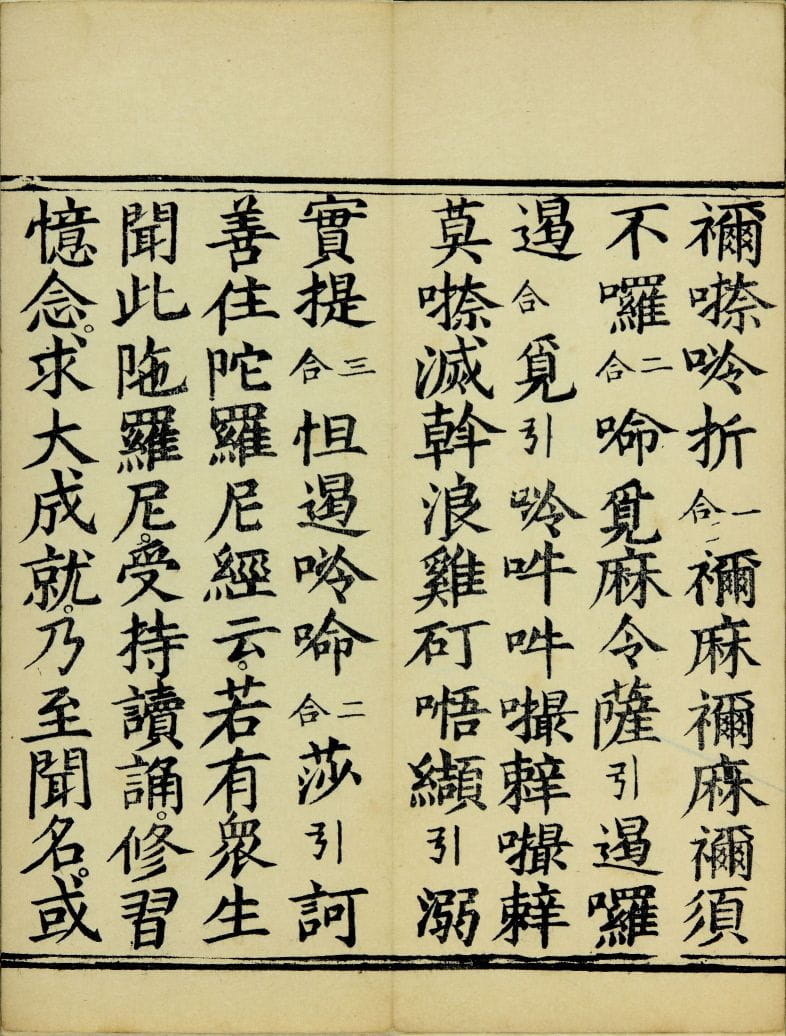 禰㗚呤折二合禰麻禰麻禰須
不囉二合㖫覓麻令薩引遏囉
遏合覓引呤吽吽㘑辢㘑辢
莫㗚滅斡浪雞矴唔纈引溺
實提三合怛遏呤㖫二合莎引訶
善住陀羅尼經云。若有衆生
聞此陁羅尼。受持讀誦。修習
憶念。求大成就。乃至聞名。或